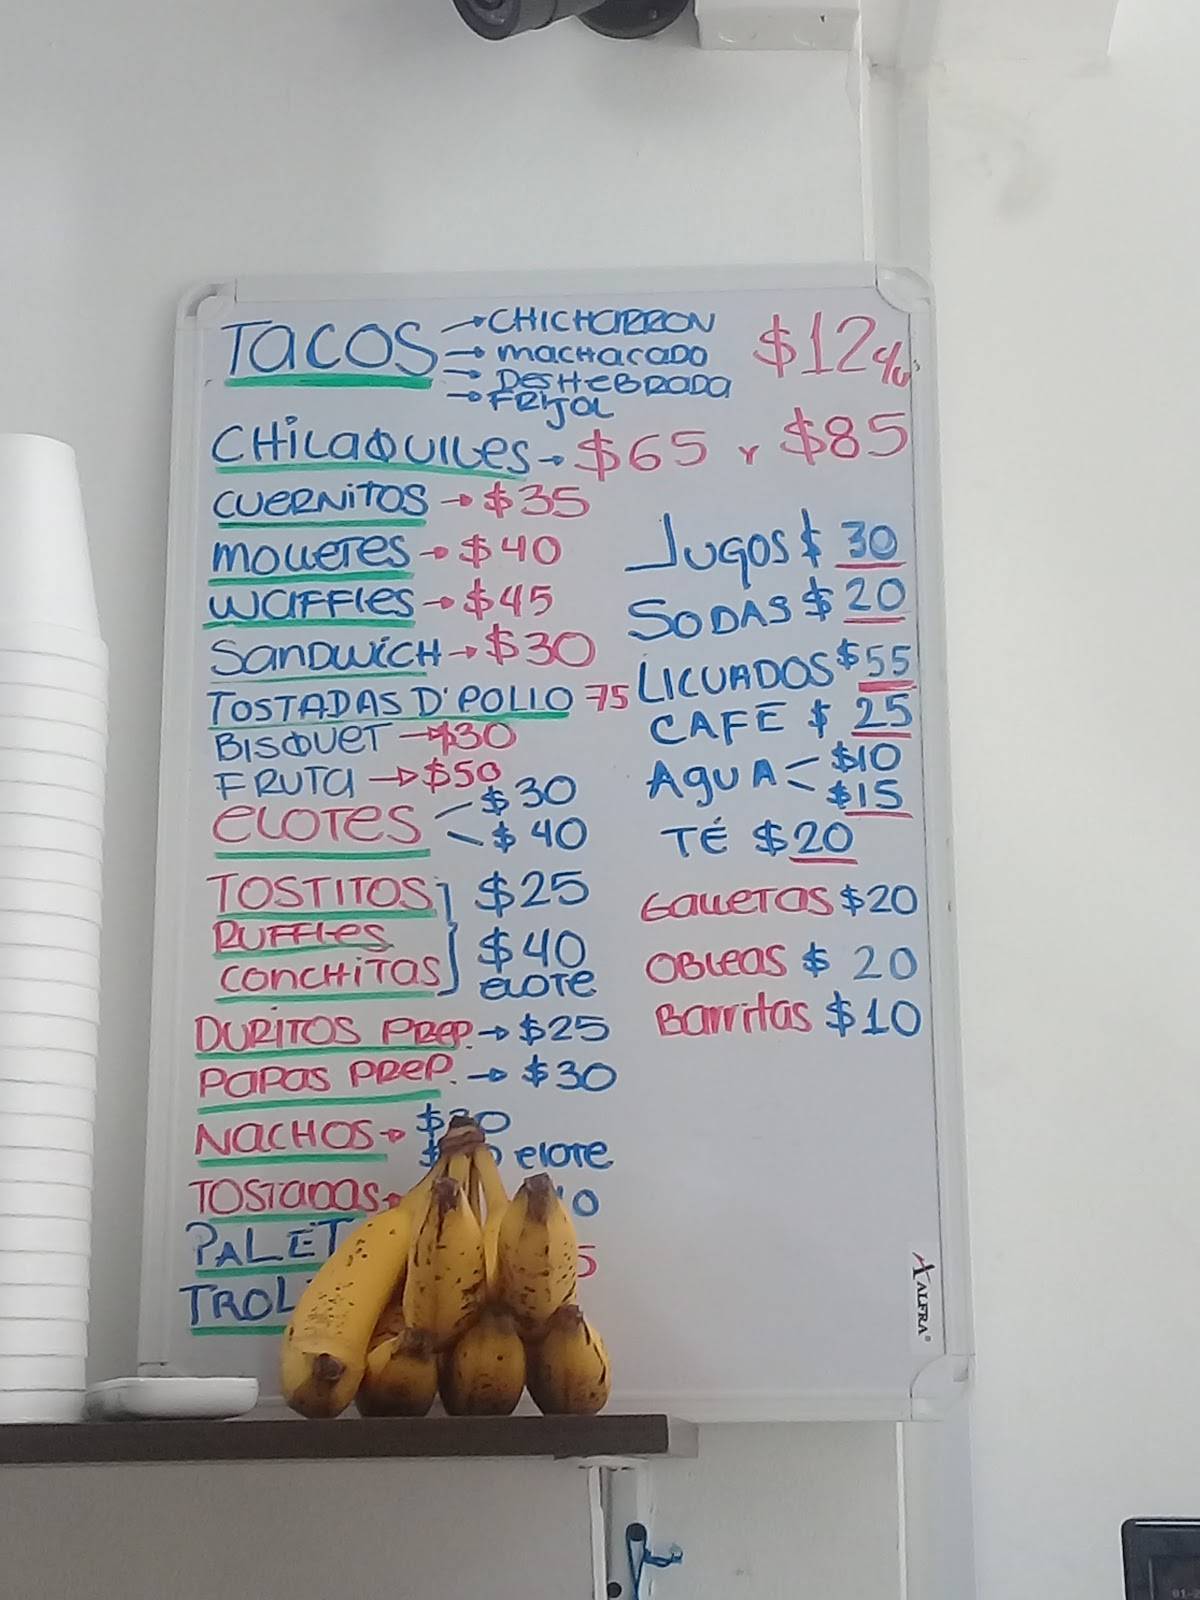 TACOS → CHICHARRON $12 c/u
→ MACHACADO
→ DESHEBRADA
→ FRIJOL
CHILAQUILES → $65 Y $85
CUERNITOS → $35
MOLLETES → $40
WAFFLES → $45
SANDWICH → $30
TOSTADAS D' POLLO 75
BISQUET → $30
FRUTA → $50
ELOTES $30
$40
TOSTITOS $25
RUFFLES $40
CONCHITAS ELOTE
DURITOS PREP. → $25
PAPAS PREP. → $30
NACHOS →
ELOTE
TOSTADAS
JUGOS $30
SODAS $20
LICUADOS $55
CAFE $25
AGUA $10
$15
TÉ $20
GALLETAS $20
OBLEAS $20
Barritas $10
ALFRA®